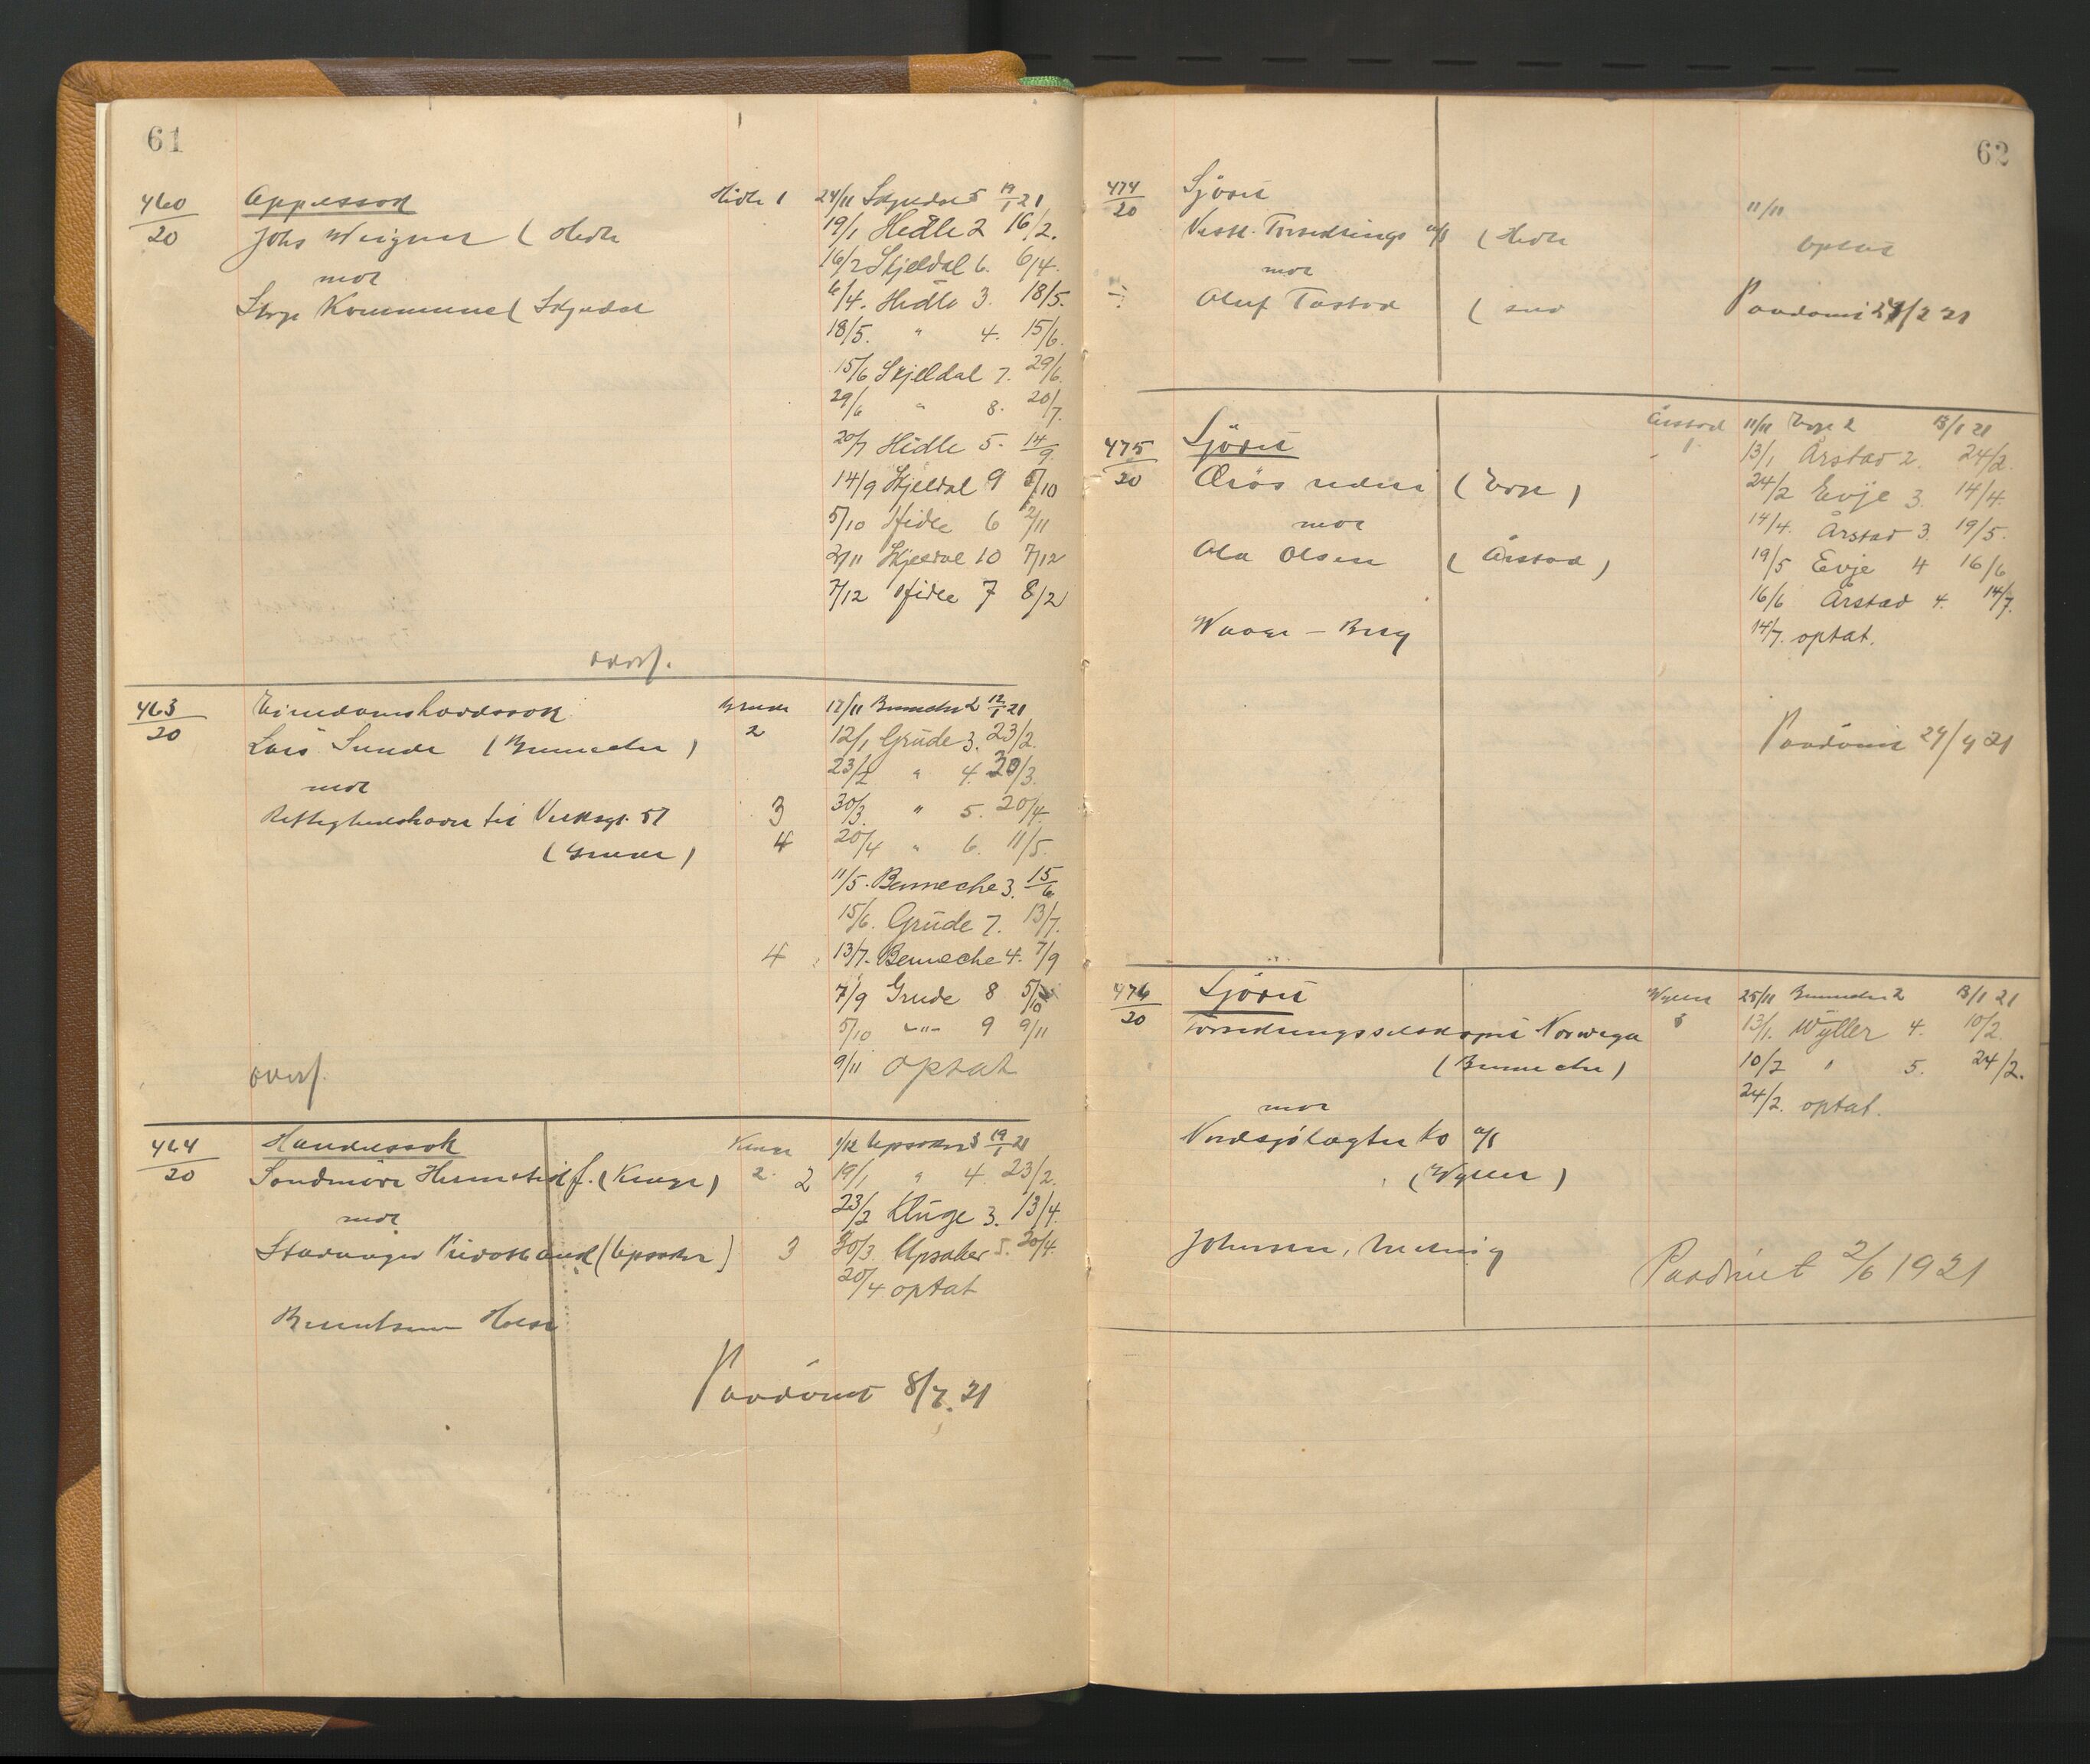 61
460/20 Appelssak Hidle 1 24/11 Skjeldal 5 19/1 21
Johs Weigner ( Hidle 19/1 Hidle 2 16/2.
mot 16/2 Skjeldal 6. 6/4.
Kommune ( Skjeldal 6/4. Hidle 3. 18/5.
18/5. " 4. 15/6.
15/6 Skjeldal 7. 29/6.
29/6 " 8. 20/7.
20/7 Hidle 5. 14/9.
14/9 Skjeldal 9 5/10
5/10 Hidle 6 2/11
2/11 Skjeldal 10 7/12
7/12 Hidle 7 8/2
overf.
463/20 Eiendomshavdssak Grude 2 17/11 Benneche 2 12/1 21
Lars Sunde (Benneche) 12/1 Grude 3. 23/2.
mot 23/2 " 4. 30/3.
Rettighedshaver til Verksgt. 57 3 30/3. " 5. 20/4.
(Grude) 4 20/4 " 6. 11/5.
11/5. Benneche 3. 15/6
15/6. Grude 7. 13/7.
4 13/7. Benneche 4. 7/9
7/9 Grude 8 5/10
5/10 -"- 9 9/11
9/11 optat
overf.
464/20 Handelssak Kluge 2. 1/12 Upsaker 3 19/1 21
Søndmøre Hermetikf. (Kluge) 2 19/1 " 4. 23/2.
mot 23/2 Kluge 3. 13/4.
Stavanger Privatbank (Upsaker) 3 30/3. Upsaker 5. 20/4.
20/4 optat
Berentsen
Paadömt 8/7. 21
62
474/20 Sjöret 11/11
Vestl. Forsikrings a/s ( Hidle optat
mot
Oluf Tastad ( selv Paadömt 24/2 21
475/20 Sjöret Årstad 1. 11/11 Evje 2 13/1 21
rederi (Evje) 13/1 Årstad 2. 24/2.
mot 24/2 Evje 3. 14/4.
Ola Olsen (Årstad) 14/4. Årstad 3. 19/5.
19/5 Evje 4 16/6
16/6 Årstad 4. 14/7.
Waage - Berg 14/7. optat.
Paadömt 29/9 21
476/20 Sjöret Wyller 25/11 Benneche 2 13/1 21
Forsikringsselskapet Norvegia 13/1. Wyller 4. 10/2.
(Benneche) 10/2 " 5. 24/2.
mot 24/2. optat.
Nordsjölagter Co a/s
(Wyller)
Johnsen,
Paadömt 2/6 1921